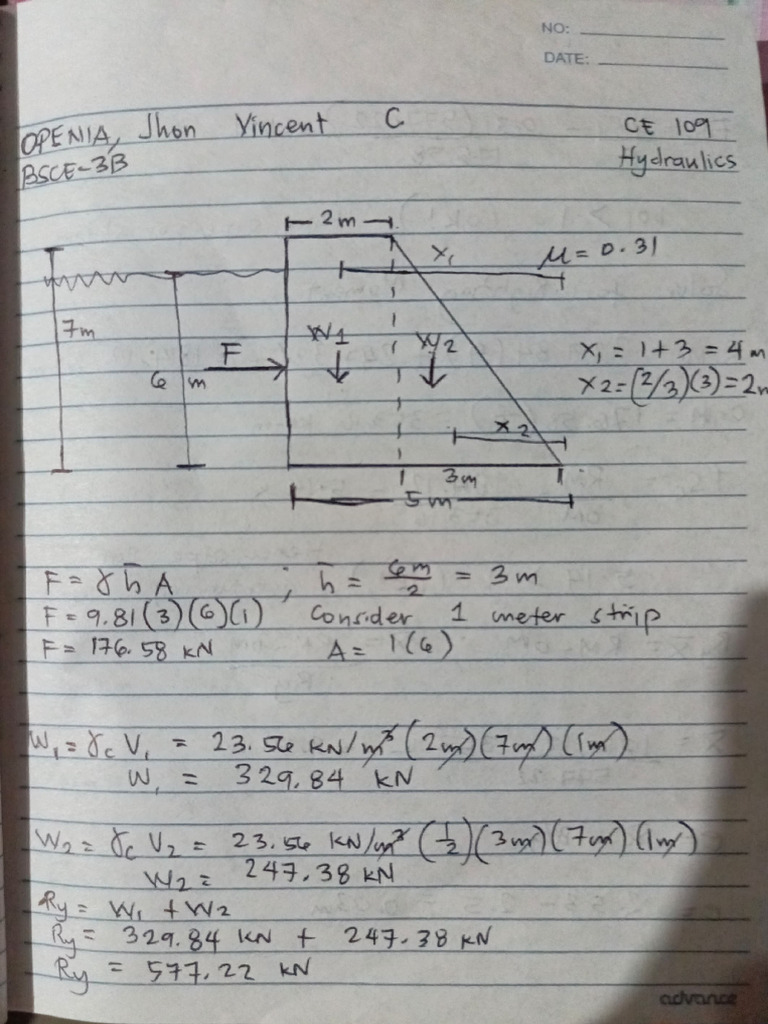 NO:
DATE:
OPENIA, Jhon Vincent C
CE 109
BSCE-3B
Hydraulics
2m
x₁
μ = 0.31
7m
W1
W2
F
6 m
x₁ = 1 + 3 = 4m
x2 = (2/3)(3) = 2m
x2
3m
5m
F = γ h̄ A ; h̄ = 6m/2 = 3m
F = 9.81 (3)(6)(1) Consider 1 meter strip
F = 176.58 KN A = 1(6)
W₁ = γc V₁ = 23.56 KN/m³ (2m)(7m)(1m)
W₁ = 329.84 KN
W2 = γc V2 = 23.56 KN/m³ (1/2)(3m)(7m)(1m)
W2 = 247.38 KN
Ry = W1 + W2
Ry = 329.84 KN + 247.38 KN
Ry = 577.22 KN
advance